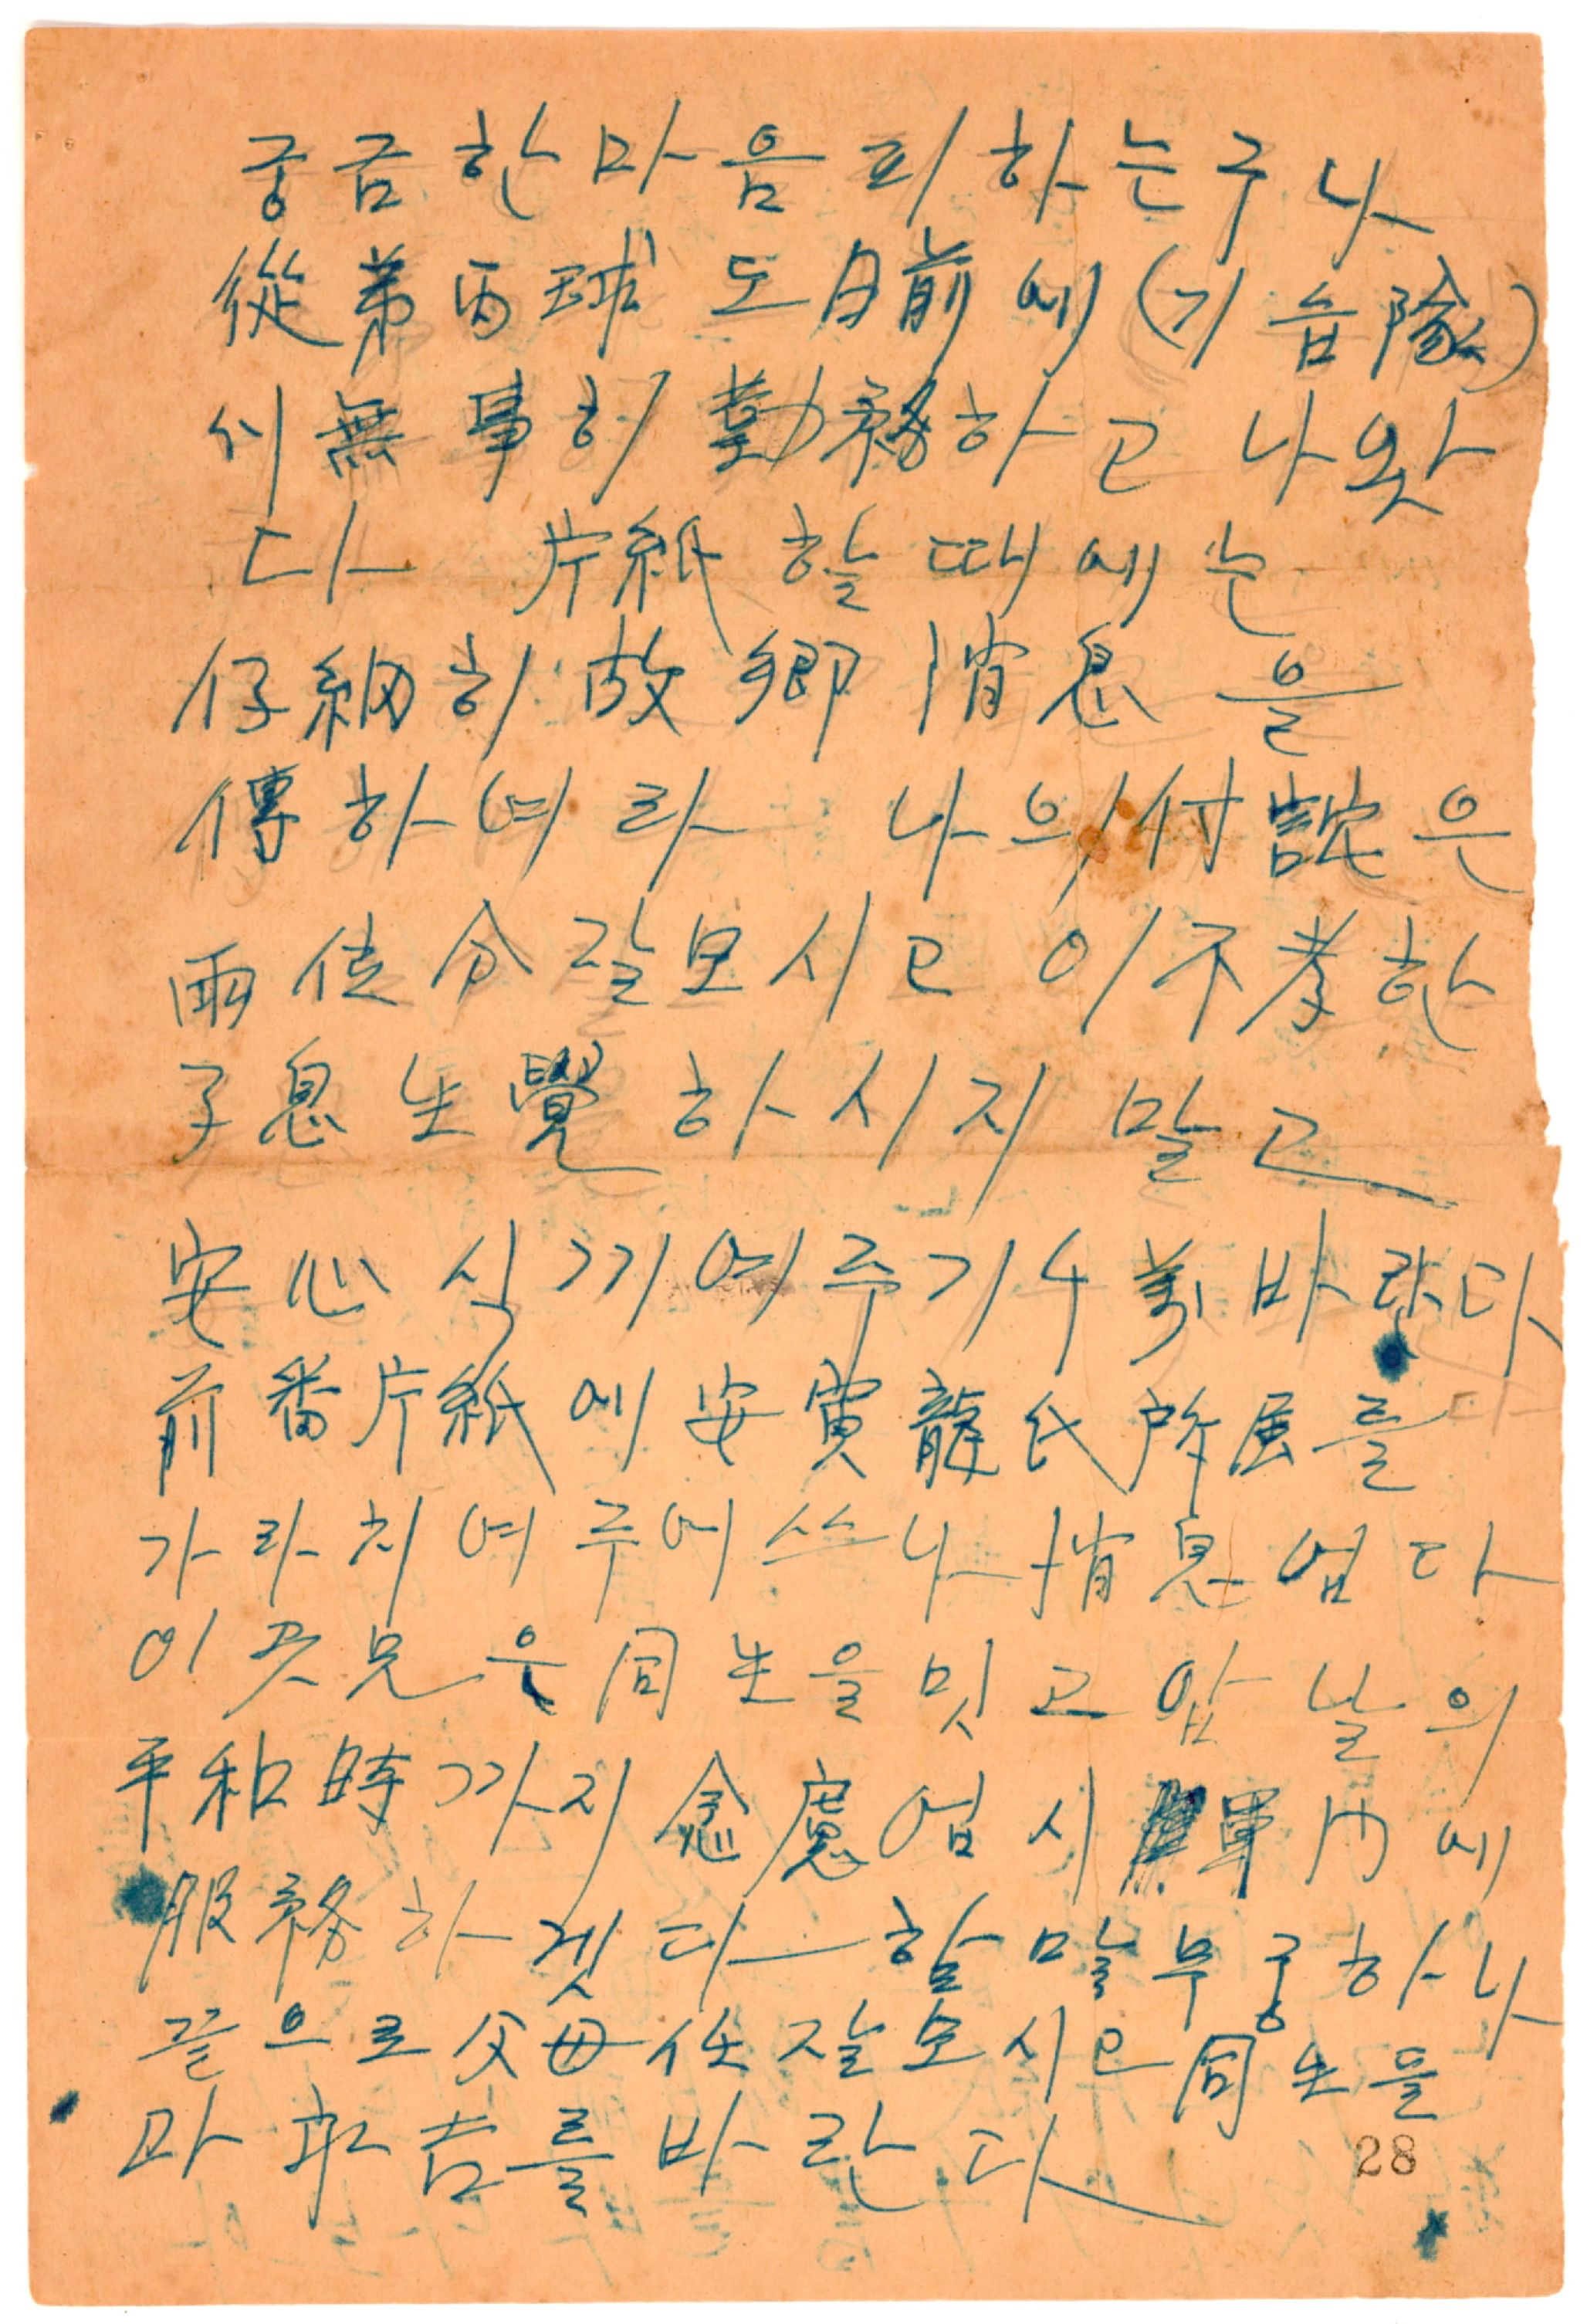 궁금한마음피하는구나
從弟丙球도日前에(기음隊)
시無事히勤務하고나왓
다 片紙할때에는
仔細히故鄕消息을
傳하여라 나의付託은
兩位分잘모시고이不孝한
子息生覺하시지말고
安心식키여주기千萬바란다
前番片紙에安寅龍氏所屬를
가라치여주어쓰나消息업다
이못兄은同生을밋고앞날의
平和時까지念慮업시軍門에
服務하겟다 할말무궁하나
끝으로父母任잘모시고同生들
과 를바란다
28